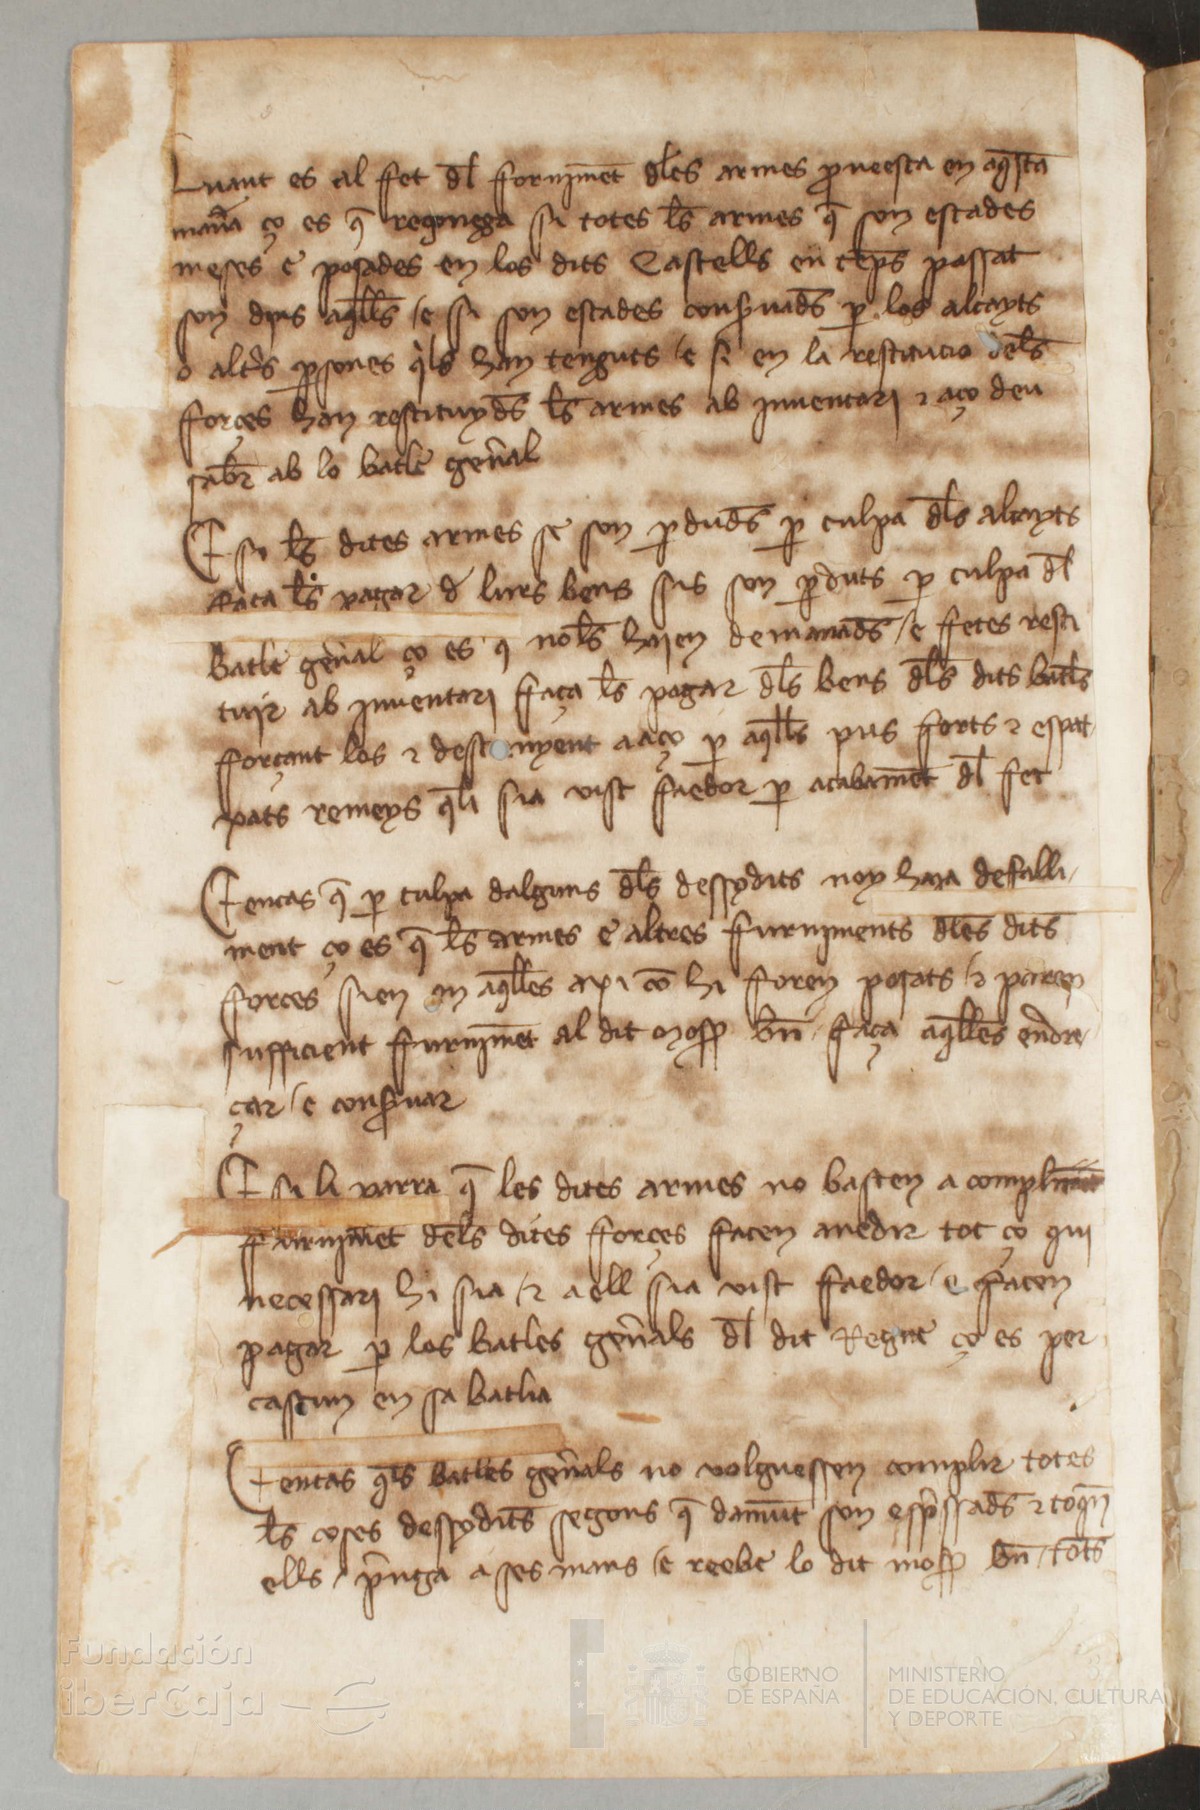 Quant es al fet dl forniment dles armes proueesca en aqsta
manera ço es q regonega si totes ls armes q son estades
meses e posades en los dits Castells en temps passat
son dins aqlls / e si son estades conseruads p los alcayts
o altrs psones qls han tenguts / e si en la restitucio dels
forçes han restituyds ls armes ab inuentari z aço deu
sabr ab lo batle general
E si ls dites armes se son pduds p culpa dls alcayts
faça ls pagar d lurs bens sis son pduts p culpa dl
batle general ço es q nols hajen demanads / e fetes resti
tuir ab inuentari ffaça ls pagar dls bens dls dits batles
forçant los z destrenyent a aço p aqlls pus forts z espat
pats remeys qli sia vist faedor p acabament dl fet
E encas q p culpa dalguns dls dessydits noy haja defalli
ment ço es q ls armes e altres ffurniments dles dits
forces sien en aqlles axi co hi foren posats / z paren
sufficient ffurniment al dit mossen bn faça aqlles endre
çar / e conseruar
E si li parra q les dites armes no basten a compliment
ffurniment dels dites forçes facen anedir tot ço qui
necessari hi sia / z a ell sia vist faedor / e facen
pagar p los batles generals dl dit Regne ço es per
cascun en sa batlia
E encas qls batles generals no volguessen complir totes
ls coses dessydits segons q damunt son espressads z toqn
ells / prenga a ses mans / e reebe lo dit mossen bn / tots
Fundación
iberCaja
GOBIERNO
DE ESPAÑA
MINISTERIO
DE EDUCACIÓN, CULTURA
Y DEPORTE